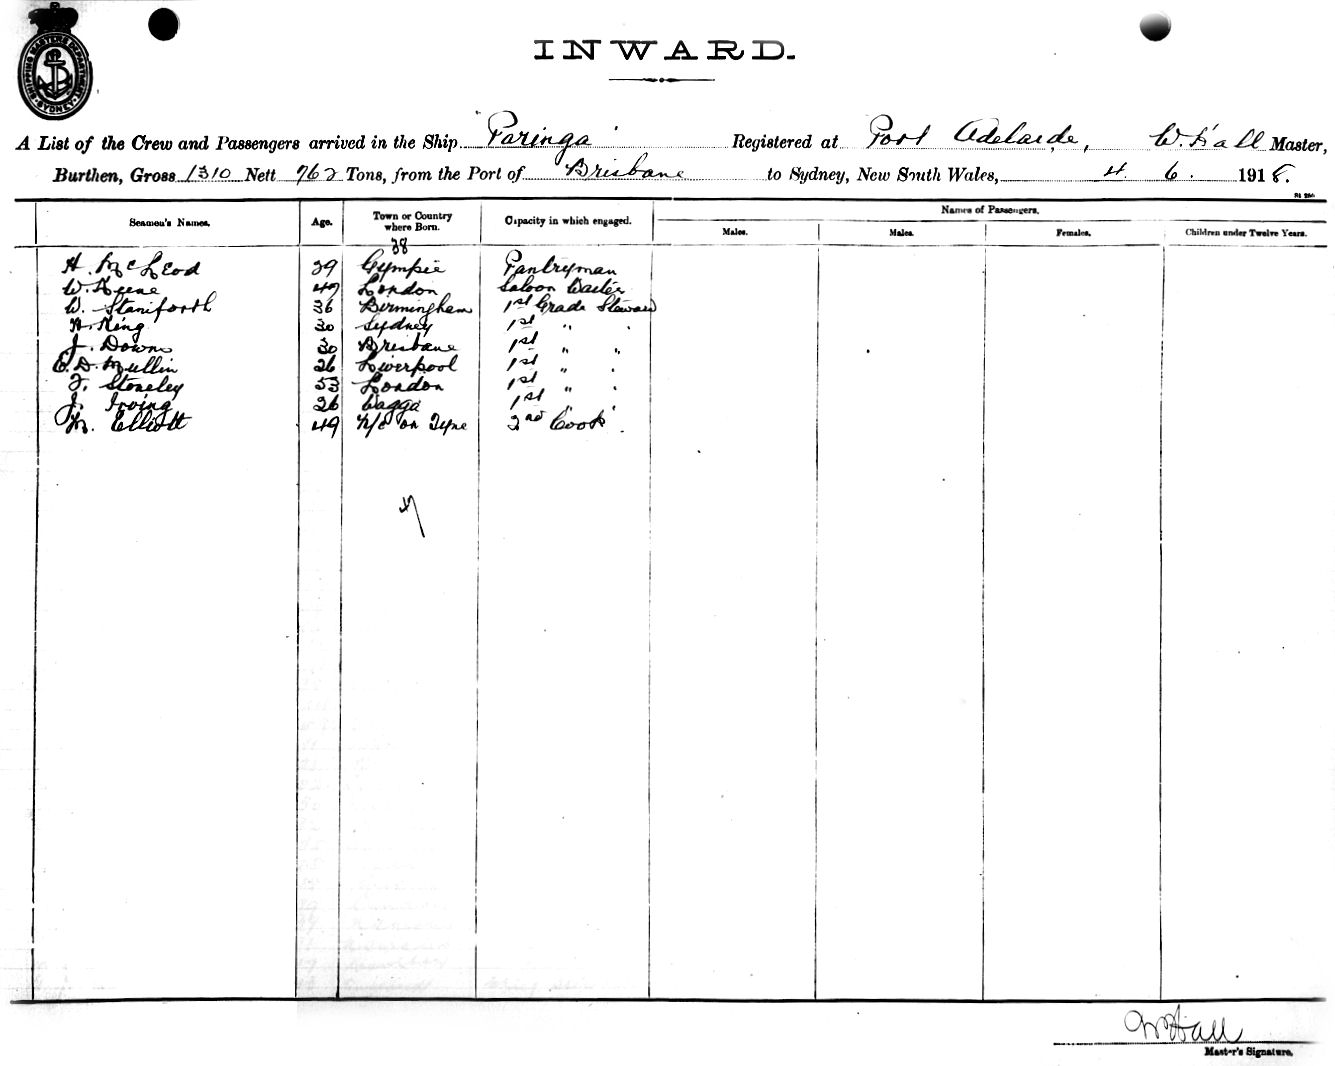 SHIPPING MASTERS DEPARTMENT SYDNEY
INWARD.
A List of the Crew and Passengers arrived in the Ship "Paringa" Registered at Port Adelaide, W. Hall Master,
Burthen, Gross 1310 Nett 762 Tons, from the Port of Brisbane to Sydney, New South Wales, 4. 6. 1918.
Seamen's Names. Age. Town or Country where Born. Capacity in which engaged. Names of Passengers.
Males. Males. Females. Children under Twelve Years.
38
H. McLeod 39 Gympie Pantryman
W. Keene 49 London Saloon Waiter
W. Staniforth 36 Birmingham 1st Grade Steward
H. King 30 Sydney 1st " "
J. Downs 30 Brisbane 1st " "
C. D. Mullin 26 Liverpool 1st " "
F. Stoneley 53 London 1st " "
J. Irving 26 Wagga 1st " "
M. Elliott 49 N/C on Tyne 2nd Cook
W Hall
Master's Signature.